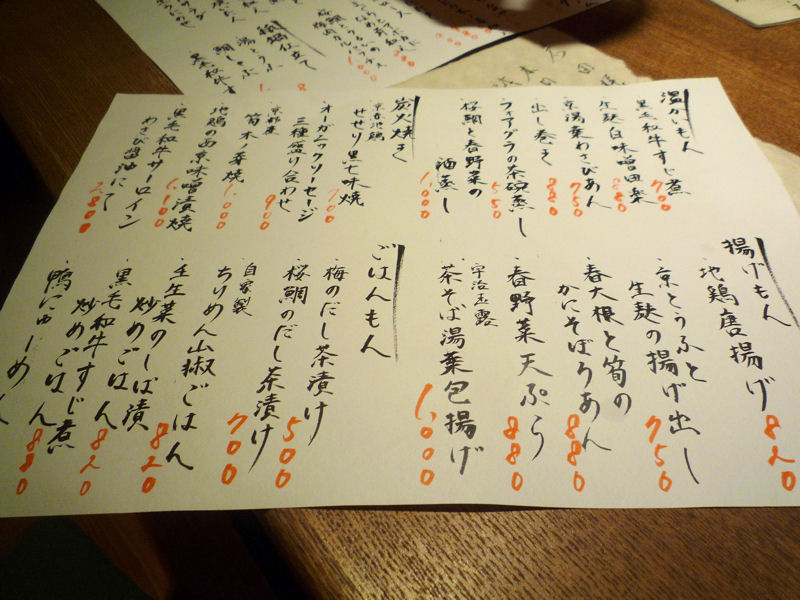 温かいもん
・黒毛和牛すじ煮
700
・生麸白味噌田楽
880
・京湯葉わさびあん
750
・出し巻き
880
・フォアグラの茶碗蒸し
550
・桜鯛と春野菜の
酒蒸し
1,000
炭火焼き
・京赤地鶏
せせり黒七味焼
700
・オーガニックソーセージ
三種盛り合わせ
900
・京都産
筍木ノ芽焼
1,000
・地鶏の西京味噌漬焼
1,100
・黒毛和牛サーロイン
わさび醤油にて
2,800
揚げもん
・地鶏唐揚げ
820
・京とうふと
生麸の揚げ出し
750
・春大根と筍の
かにそぼろあん
880
・春野菜天ぷら
880
・宇治玉露
茶そば湯葉包揚げ
1,000
ごはんもん
・梅のだし茶漬け
500
・桜鯛のだし茶漬け
・自家製
ちりめん山椒ごはん
700
・壬生菜のしば漬
炒めごはん
820
・黒毛和牛すじ煮
炒めごはん
820
・鴨にゅーめん
880